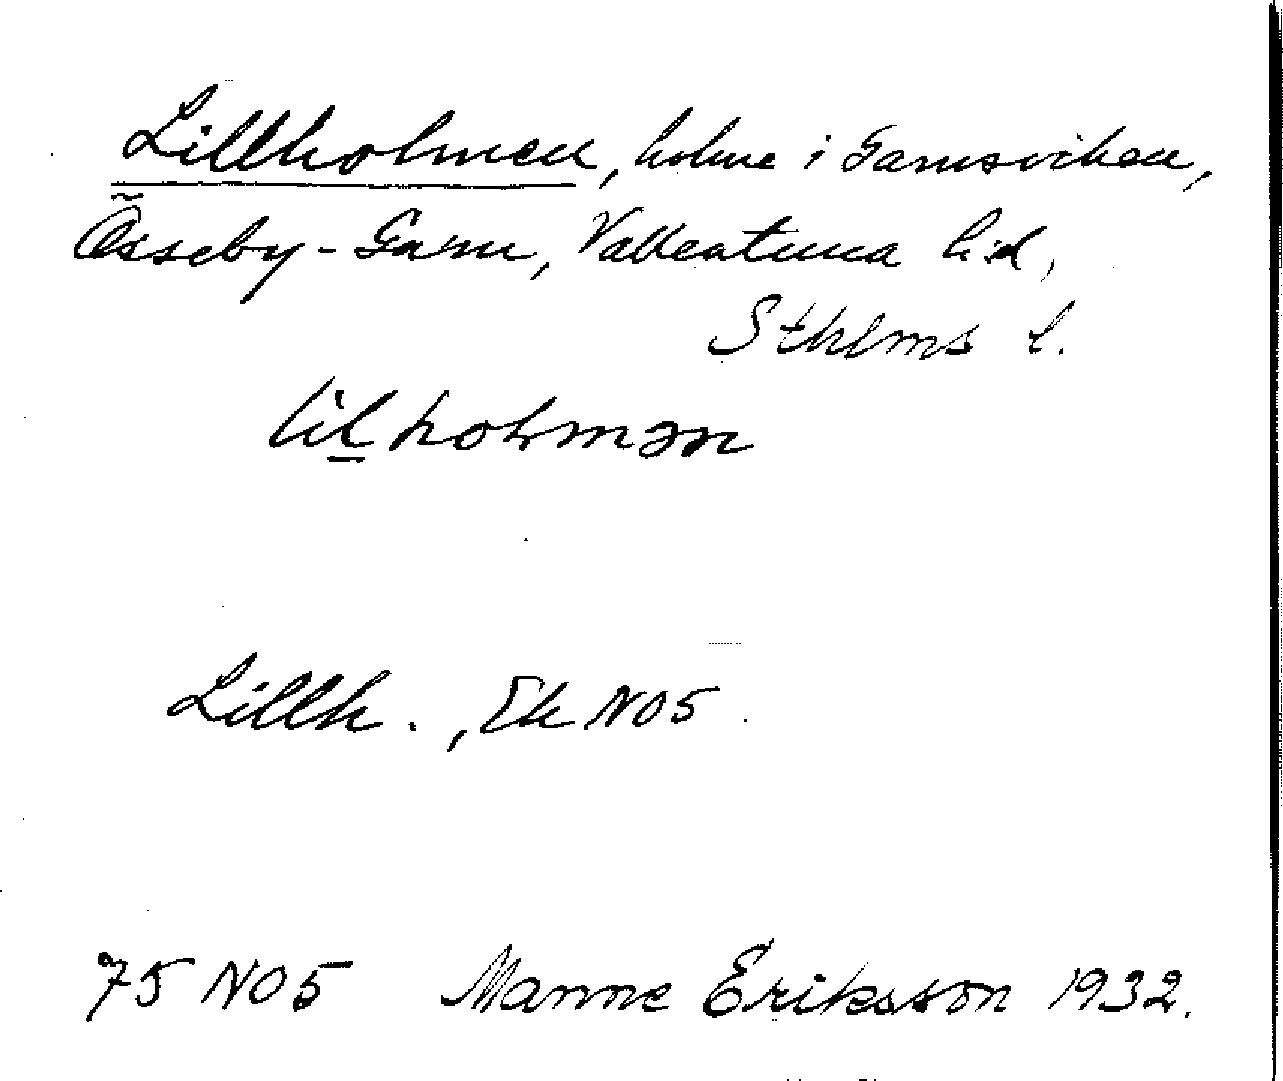 Lillholmen, holme i Garnsviken,
Össeby-Garn, Vallentuna hd,
Sthlms l.
lilholmən
Lillh., Ek NO5.
75 NO5 Manne Eriksson 1932.